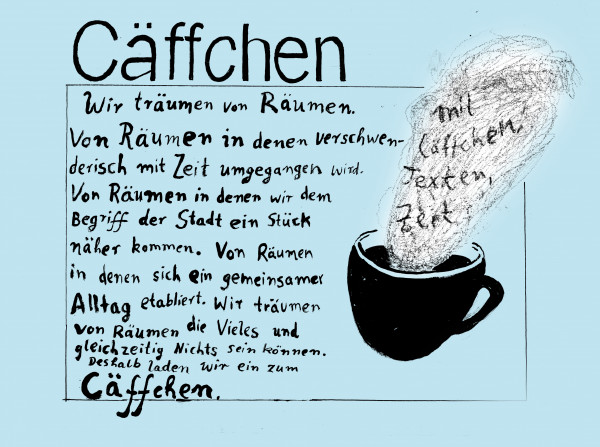 Cäffchen
Wir träumen von Räumen.
Von Räumen in denen verschwen-
derisch mit Zeit umgegangen wird.
Von Räumen in denen wir dem
Begriff der Stadt ein Stück
näher kommen. Von Räumen
in denen sich ein gemeinsamer
Alltag etabliert. Wir träumen
von Räumen die Vieles und
gleichzeitig Nichts sein können.
Deshalb laden wir ein zum
Cäffchen.
mit
Cäffchen,
Texten,
Zeit